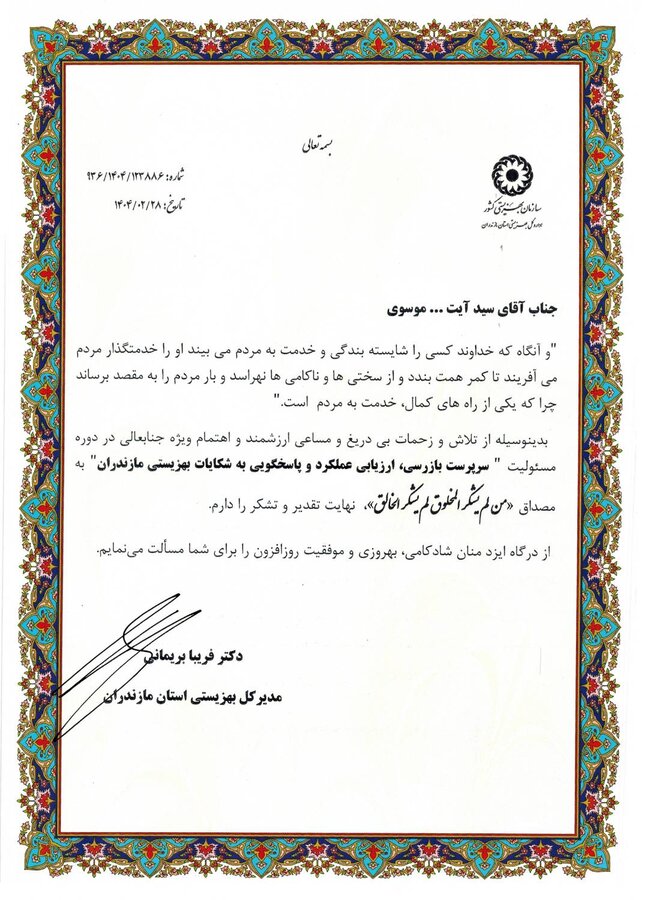 بسمه تعالی
شماره: ۹۳۶/۱۴۰۴/۱۲۳۸۸۶
تاریخ: ۱۴۰۴/۰۲/۲۸
سازمان بهزیستی کشور
اداره کل بهزیستی استان مازندران
جناب آقای سید آیت ... موسوی
"و آنگاه که خداوند کسی را شایسته بندگی و خدمت به مردم می بیند او را خدمتگذار مردم
می آفریند تا کمر همت بندد و از سختی ها و ناکامی ها نهراسد و بار مردم را به مقصد برساند
چرا که یکی از راه های کمال، خدمت به مردم است."
بدینوسیله از تلاش و زحمات بی دریغ و مساعی ارزشمند و اهتمام ویژه جنابعالی در دوره
مسئولیت " سرپرست بازرسی، ارزیابی عملکرد و پاسخگویی به شکایات بهزیستی مازندران" به
مصداق «من لم یشکر المخلوق لم یشکر الخالق»، نهایت تقدیر و تشکر را دارم.
از درگاه ایزد منان شادکامی، بهروزی و موفقیت روزافزون را برای شما مسألت می‌نمایم.
دکتر فریبا بریمانی
مدیرکل بهزیستی استان مازندران